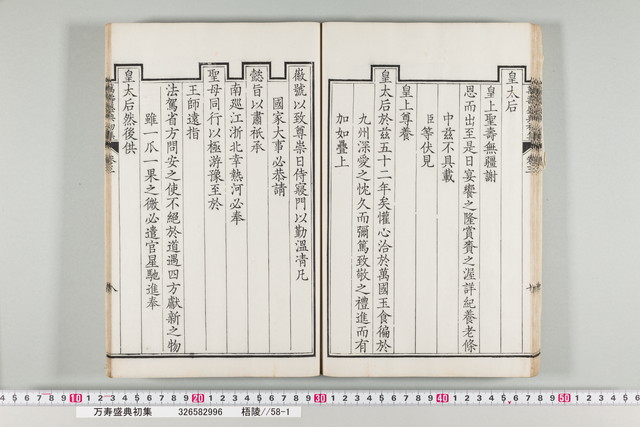 皇太后
皇上聖壽無疆謝
恩而出至是日宴饗之隆賞賚之渥詳紀養老條
中茲不具載
臣等伏見
皇上尊養
皇太后於茲五十二年矣懽心洽於萬國玉食徧於
九州深愛之忱久而彌篤致敬之禮進而有
加如疊上
徽號以致尊崇日侍寢門以勤溫凊凡
國家大事必恭請
懿旨以肅祇承
南廵江浙北幸熱河必奉
聖母同行以極游豫至於
王師遠指
法駕省方問安之使不絕於道遇四方獻新之物
雖一瓜一果之微必遣官星馳進奉
皇太后然後供
10 20 30 40 50
万寿盛典初集 326582996 梧陵//58-1